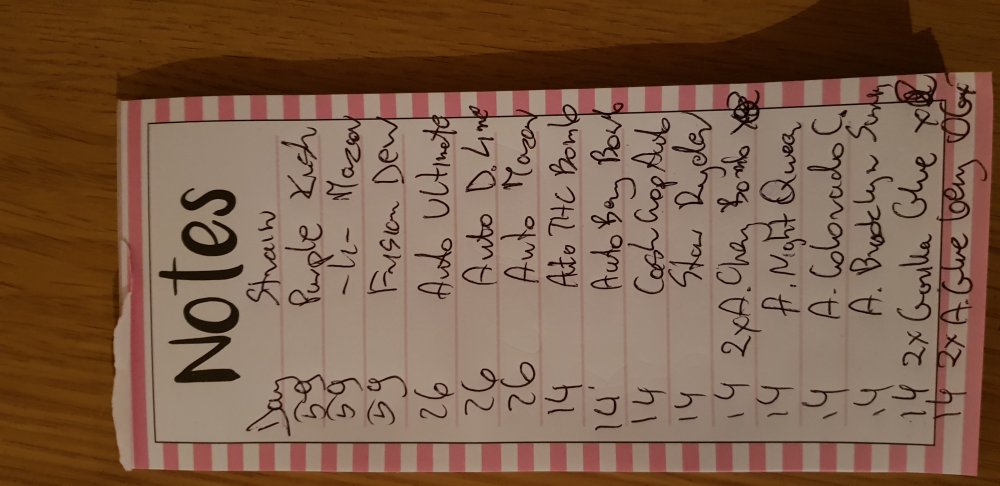 Notes
Day Strain
59 Purple Kush
59 -11- Mazar
59 Fusion Dew
26 Auto Ultimate
26 Auto D. Lime
26 Auto Mazar
14 Auto THC Bomb
14 Auto Berry Bomb
14 Cash Crop Auto
14 Star Ryder
14 2x A. Cherry Bomb
14 A. Night Queen
14 A. Colorado C.
14 A. Brooklyn
14 2x Gorilla Glue
14 2x A. Glue Berry